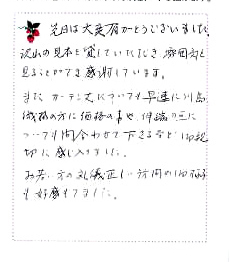 先日は大変有がとうございました
沢山の見本を貸していただき 雰囲気を
見ることができ感謝しています。
また カーテン丈についても早速に川島
織物の方に価格の事や
ついても問合わせて下さるなど ご親
切に感じ入りました。
お若い方の礼儀正しい訪問の
も好感もてました。